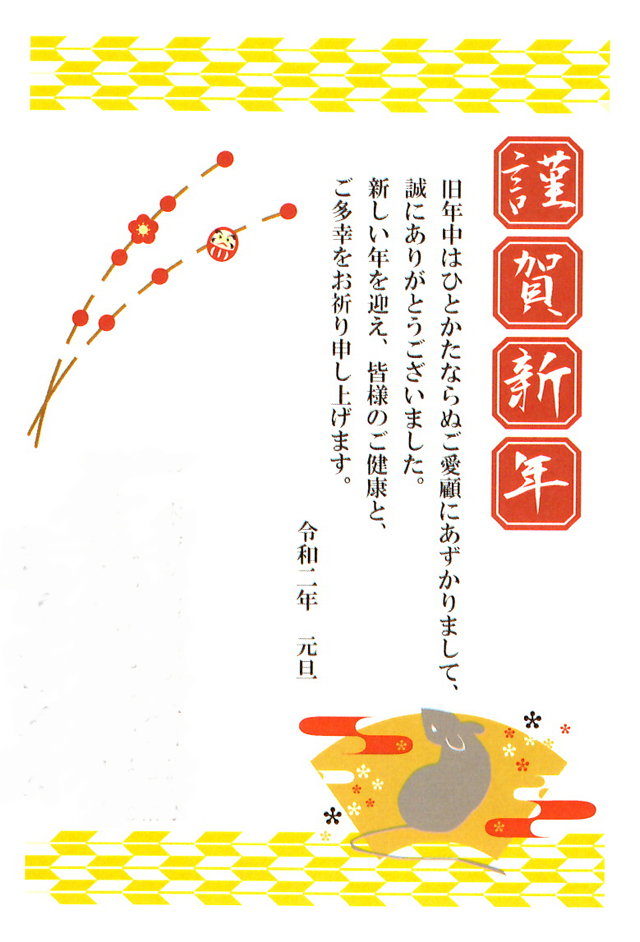 謹賀新年
旧年中はひとかたならぬご愛顧にあずかりまして、
誠にありがとうございました。
新しい年を迎え、皆様のご健康と、
ご多幸をお祈り申し上げます。
令和二年　元旦